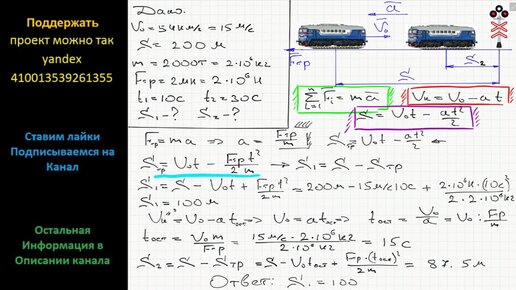 Поддержать
проект можно так
yandex
410013539261355
Ставим лайки
Подписываемся на
Канал
Остальная
Информация в
Описании канала
Дано:
V₀ = 54 км/с = 15 м/с
S = 200 м
m = 2000т = 2·10⁶ кг
Fтр = 2МН = 2·10⁶ Н
t₁ = 10с t₂ = 30с
S₁ - ? S₂ - ?
a
V₀
Fтр
S₂
S
∑Fᵢ = ma
Vк = V₀ - at
S = V₀t - at²/2
Fтр = ma ⇒ a = Fтр/m S = V₀t - at²/2
Sтр = V₀t - Fтр t²/2m → S₁ = S - Sтр
S₁ = S - V₀t + Fтр t²/2m = 200м - 15м/с·10с + 2·10⁶Н·(10с)²/2·2·10⁶кг
S₁ = 100м
Vк = V₀ - at ⇒ V₀ = at ⇒ tост = V₀/a = V₀ : Fтр/m
tост = V₀m/Fтр = 15м/с·2·10⁶кг/2·10⁶Н = 15с
S₂ = S - Sтр = S - V₀tост + Fтр·(tост)²/2m = 87.5м
Ответ: S₁ = 100